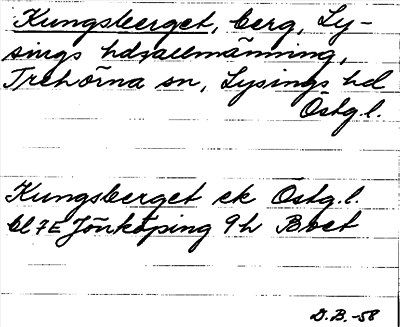 Kungsberget, berg, Ly-
sings hdsallmänning,
Trehörna sn, Lysings hd
Östg.l.
Kungsberget ek Östg.l.
bl 7E Jönköping 9h Boet
D.B.-58